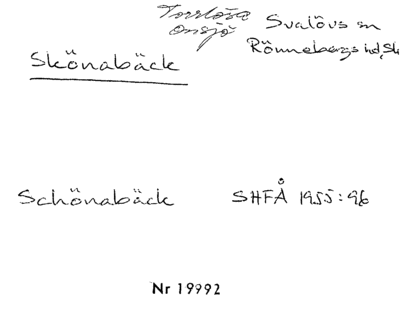 Torrlösa Svalövs sn
Onsjö Rönnebergs hd, Sk
Skönabäck
Schönabäck SHFÅ 1955:96
Nr 19992